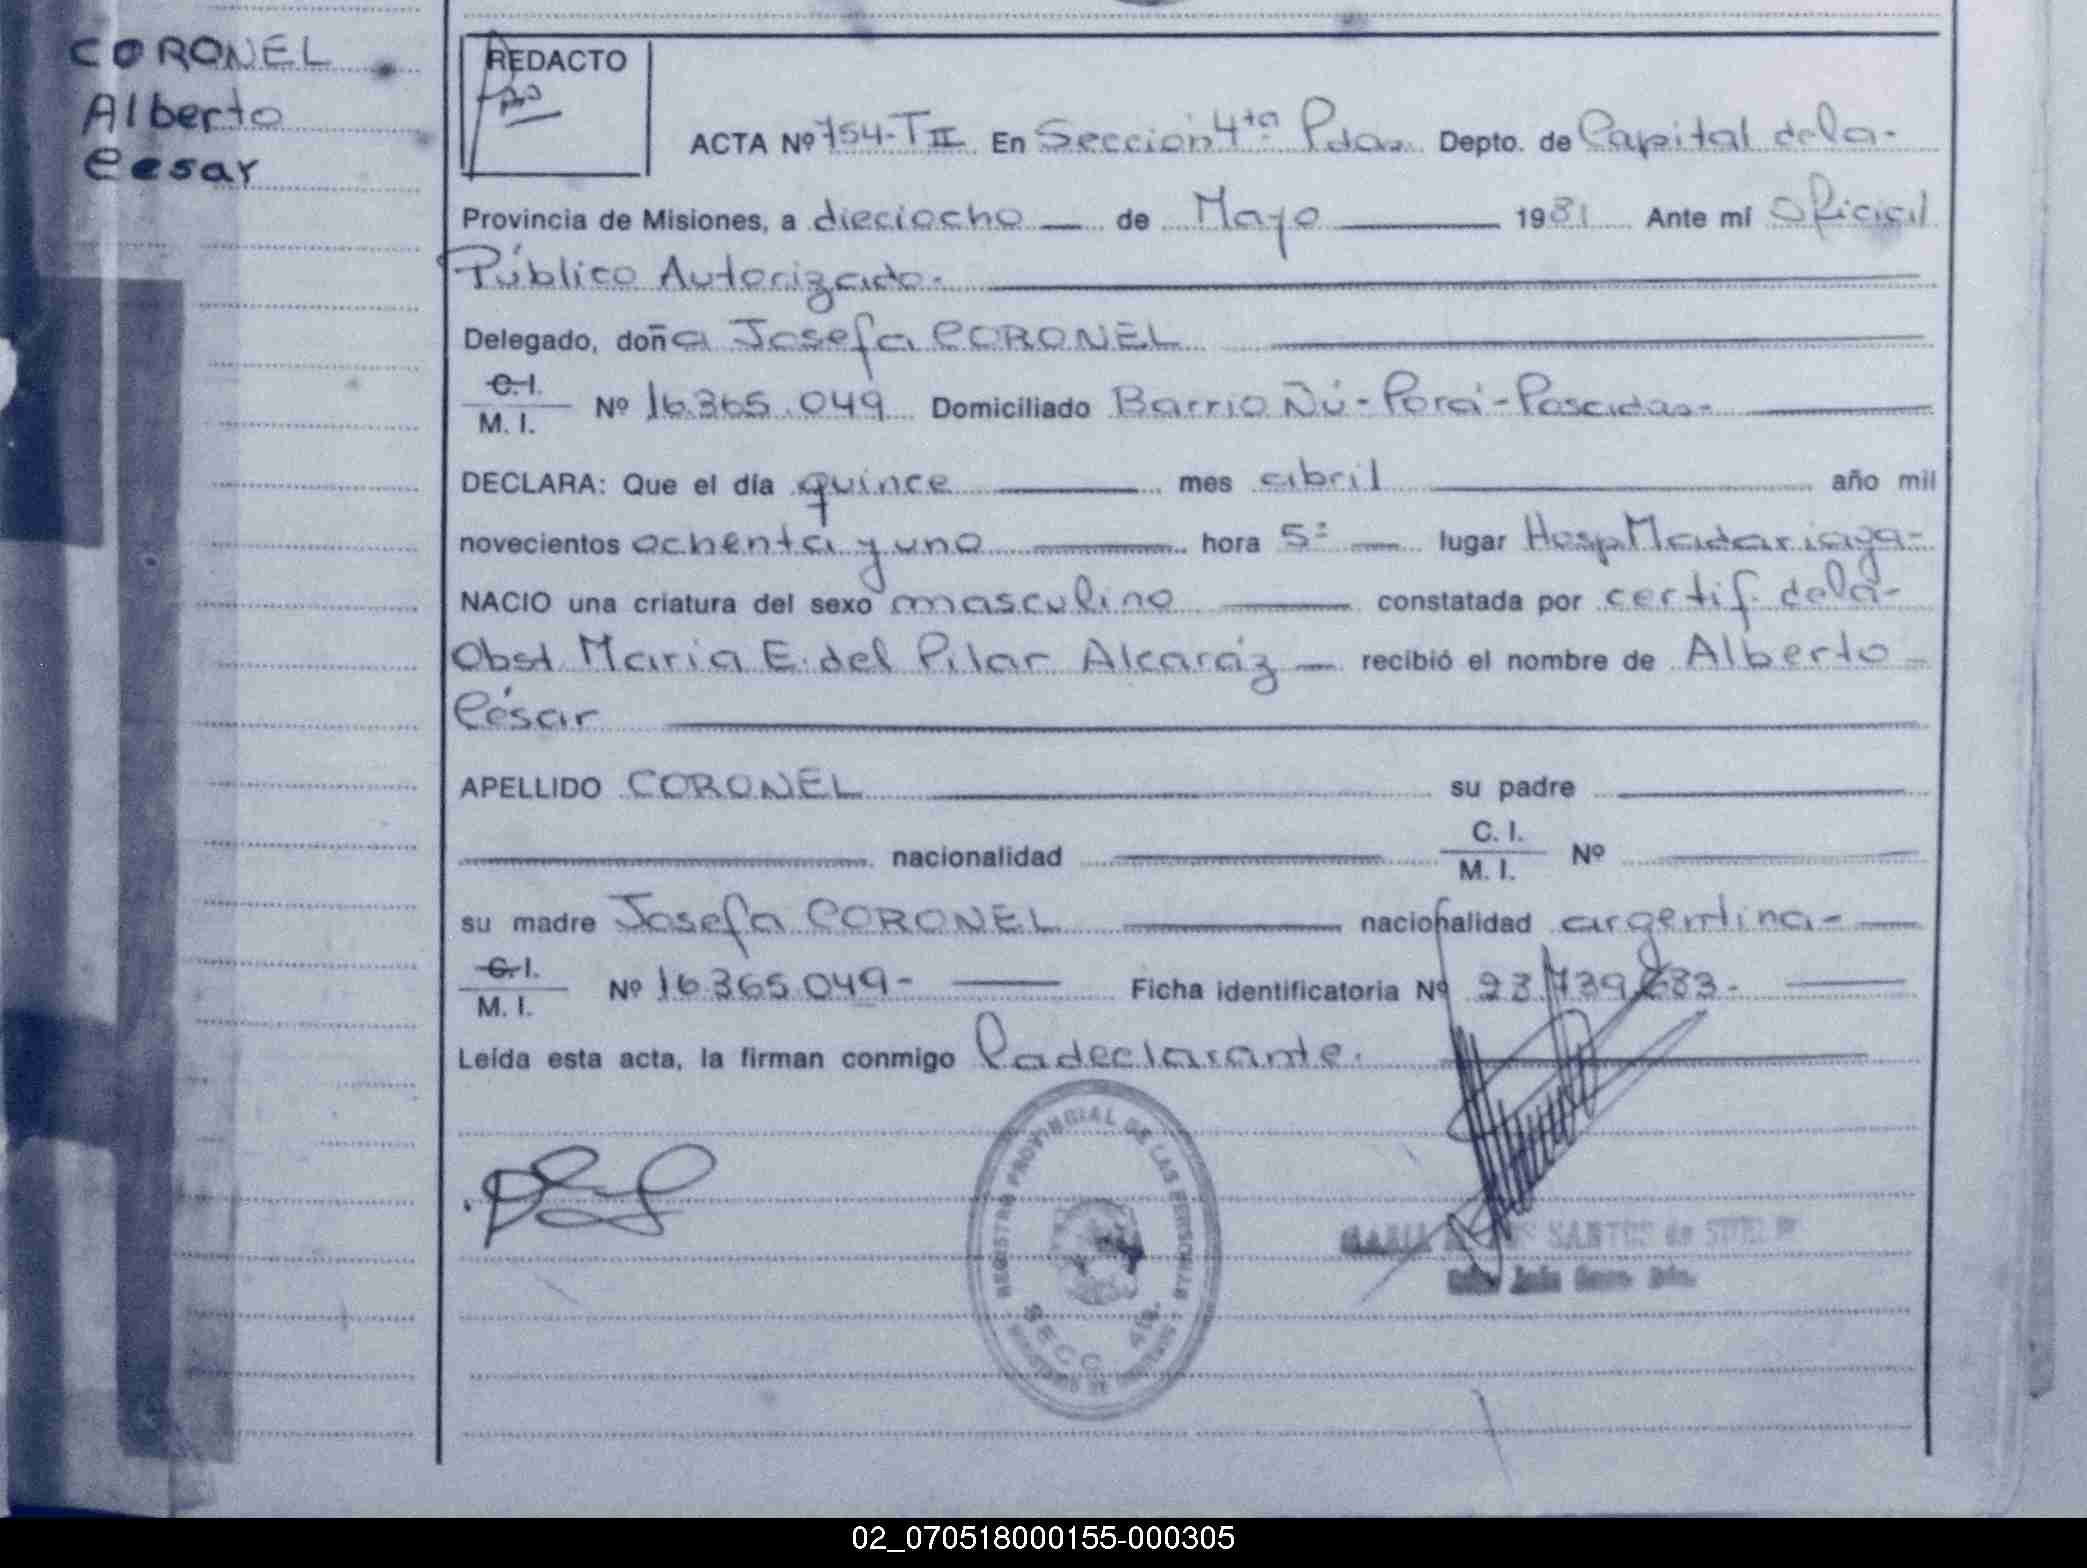 CORONEL
Alberto
Cesar
REDACTO
ACTA Nº 754-T II En Sección 4ta Pdas. Depto. de Capital de la-
Provincia de Misiones, a dieciocho de Mayo 1981 Ante mí Oficial
Público Autorizado-
Delegado, doña Josefa CORONEL
C. I.
M. I. Nº 16.365.049 Domiciliado Barrio Ñú-Porá-Posadas-
DECLARA: Que el día quince mes abril año mil
novecientos ochenta y uno hora 5= lugar Hosp Madariaga-
NACIO una criatura del sexo masculino constatada por certif. de la-
Obst. Maria E. del Pilar Alcaráz recibió el nombre de Alberto
César
APELLIDO CORONEL su padre
nacionalidad C. I.
M. I. Nº
su madre Josefa CORONEL nacionalidad argentina-
C. I.
M. I. Nº 16.365.049- Ficha identificatoria Nº
Leída esta acta, la firman conmigo La declarante.
REGISTRO PROVINCIAL DE LAS PERSONAS
SECC. 4ta.
SANTOS de
02_070518000155-000305